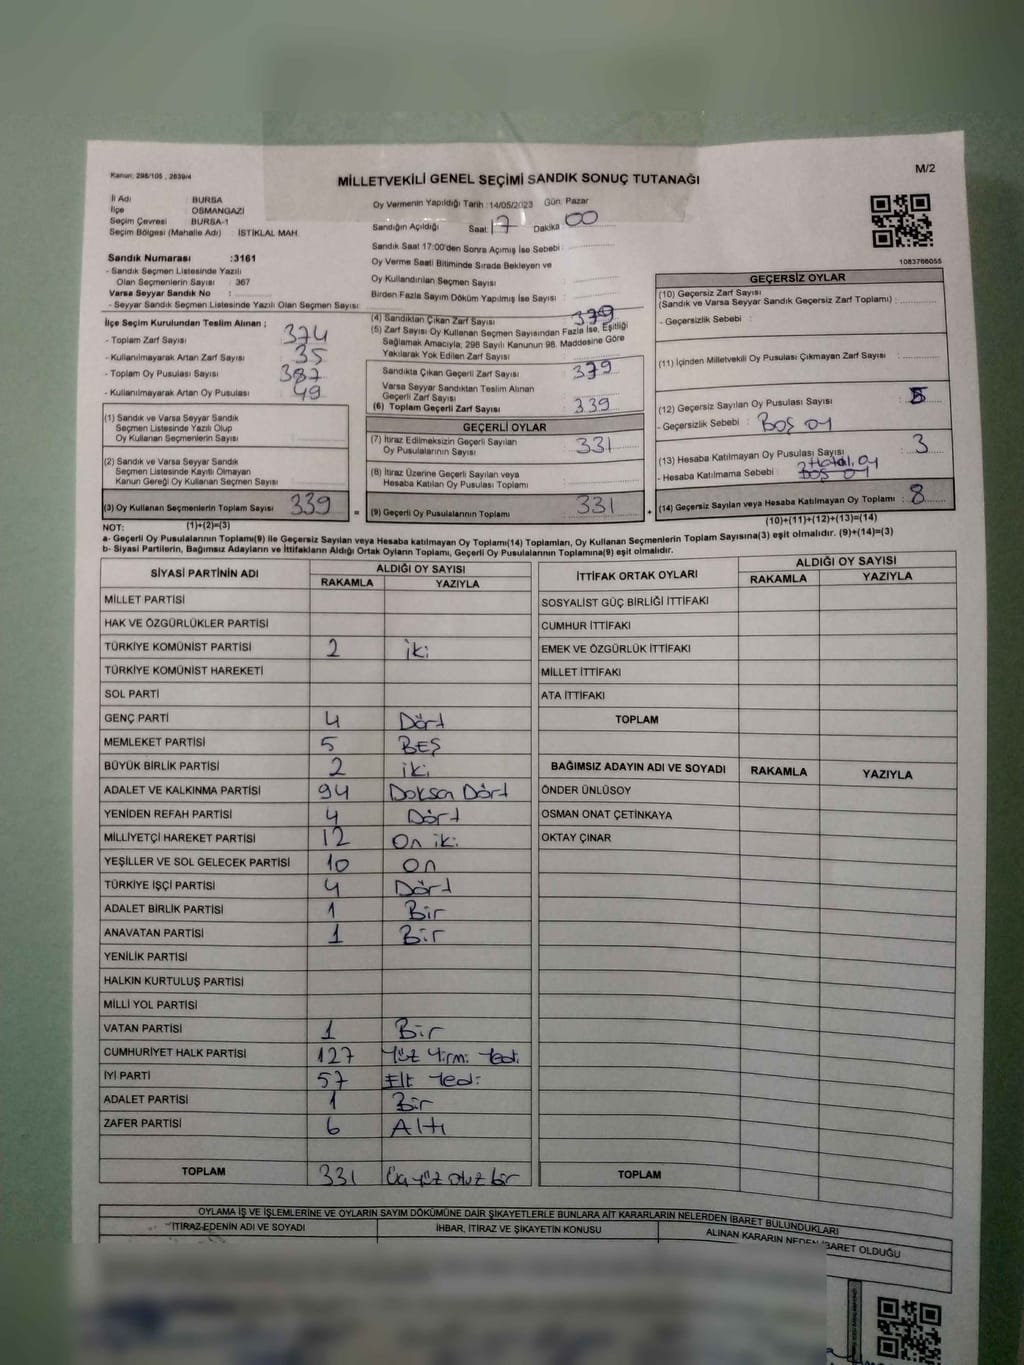 Kanun: 298/105 , 2839/4
M/2
MİLLETVEKİLİ GENEL SEÇİMİ SANDIK SONUÇ TUTANAĞI
İl Adı : BURSA
İlçe : OSMANGAZİ
Seçim Çevresi : BURSA-1
Seçim Bölgesi (Mahalle Adı) : İSTİKLAL MAH.
Sandık Numarası :3161
- Sandık Seçmen Listesinde Yazılı
Olan Seçmenlerin Sayısı : 367
Varsa Seyyar Sandık No :
- Seyyar Sandık Seçmen Listesinde Yazılı Olan Seçmen Sayısı:
Oy Vermenin Yapıldığı Tarih :14/05/2023 Gün: Pazar
Sandığın Açıldığı Saat: 17 Dakika: 00
Sandık Saat 17:00'den Sonra Açımış İse Sebebi :
Oy Verme Saati Bitiminde Sırada Bekleyen ve
Oy Kullandırılan Seçmen Sayısı :
Birden Fazla Sayım Döküm Yapılmış İse Sayısı :
1083766055
İlçe Seçim Kurulundan Teslim Alınan ;
- Toplam Zarf Sayısı : 374
- Kullanılmayarak Artan Zarf Sayısı : 35
- Toplam Oy Pusulası Sayısı : 387
- Kullanılmayarak Artan Oy Pusulası : 49
(1) Sandık ve Varsa Seyyar Sandık
Seçmen Listesinde Yazılı Olup
Oy Kullanan Seçmenlerin Sayısı :
(2) Sandık ve Varsa Seyyar Sandık
Seçmen Listesinde Kayıtlı Olmayan
Kanun Gereği Oy Kullanan Seçmen Sayısı :
(3) Oy Kullanan Seçmenlerin Toplam Sayısı : 339
(1)+(2)=(3)
(4) Sandıktan Çıkan Zarf Sayısı : 339
(5) Zarf Sayısı Oy Kullanan Seçmen Sayısından Fazla İse, Eşitliği
Sağlamak Amacıyla, 298 Sayılı Kanunun 98. Maddesine Göre
Yakılarak Yok Edilen Zarf Sayısı :
Sandıkta Çıkan Geçerli Zarf Sayısı :
Varsa Seyyar Sandıktan Teslim Alınan
Geçerli Zarf Sayısı :
(6) Toplam Geçerli Zarf Sayısı : 339
GEÇERLİ OYLAR
(7) İtiraz Edilmeksizin Geçerli Sayılan
Oy Pusulasının Sayısı : 331
(8) İtiraz Üzerine Geçerli Sayılan veya
Hesaba Katılan Oy Pusulası Toplamı :
= (9) Geçerli Oy Pusulalarının Toplamı : 331 +
GEÇERSİZ OYLAR
(10) Geçersiz Zarf Sayısı
(Sandık ve Varsa Seyyar Sandık Geçersiz Zarf Toplamı) :
- Geçersizlik Sebebi :
(11) İçinden Milletvekili Oy Pusulası Çıkmayan Zarf Sayısı :
(12) Geçersiz Sayılan Oy Pusulası Sayısı : 5
- Geçersizlik Sebebi : Boş oy
(13) Hesaba Katılmayan Oy Pusulası Sayısı : 3
- Hesaba Katılmama Sebebi : Hatalı oy
(14) Geçersiz Sayılan veya Hesaba Katılmayan Oy Toplamı : 8
(10)+(11)+(12)+(13)=(14)
NOT:
a- Geçerli Oy Pusulalarının Toplamı(9) ile Geçersiz Sayılan veya Hesaba katılmayan Oy Toplamı(14) Toplamları, Oy Kullanan Seçmenlerin Toplam Sayısına(3) eşit olmalıdır. (9)+(14)=(3)
b- Siyasi Partilerin, Bağımsız Adayların ve İttifakların Aldığı Ortak Oyların Toplamı, Geçerli Oy Pusulalarının Toplamına(9) eşit olmalıdır.
SİYASİ PARTİNİN ADI ALDIĞI OY SAYISI
RAKAMLA YAZIYLA
MİLLET PARTİSİ
HAK VE ÖZGÜRLÜKLER PARTİSİ
TÜRKİYE KOMÜNİST PARTİSİ 2 iki
TÜRKİYE KOMÜNİST HAREKETİ
SOL PARTİ
GENÇ PARTİ 4 Dört
MEMLEKET PARTİSİ 5 BEŞ
BÜYÜK BİRLİK PARTİSİ 2 iki
ADALET VE KALKINMA PARTİSİ 94 Doksan Dört
YENİDEN REFAH PARTİSİ 4 Dört
MİLLİYETÇİ HAREKET PARTİSİ 12 On iki
YEŞİLLER VE SOL GELECEK PARTİSİ 10 on
TÜRKİYE İŞÇİ PARTİSİ 4 Dört
ADALET BİRLİK PARTİSİ 1 Bir
ANAVATAN PARTİSİ 1 Bir
YENİLİK PARTİSİ
HALKIN KURTULUŞ PARTİSİ
MİLLİ YOL PARTİSİ
VATAN PARTİSİ 1 Bir
CUMHURİYET HALK PARTİSİ 127 Yüz Yirmi Yedi
İYİ PARTİ 57 Elli Yedi
ADALET PARTİSİ 1 Bir
ZAFER PARTİSİ 6 Altı
TOPLAM 331 Üçyüz otuz bir
İTTİFAK ORTAK OYLARI ALDIĞI OY SAYISI
RAKAMLA YAZIYLA
SOSYALİST GÜÇ BİRLİĞİ İTTİFAKI
CUMHUR İTTİFAKI
EMEK VE ÖZGÜRLÜK İTTİFAKI
MİLLET İTTİFAKI
ATA İTTİFAKI
TOPLAM
BAĞIMSIZ ADAYIN ADI VE SOYADI RAKAMLA YAZIYLA
ÖNDER ÜNLÜSOY
OSMAN ONAT ÇETİNKAYA
OKTAY ÇINAR
TOPLAM
OYLAMA İŞ VE İŞLEMLERİNE VE OYLARIN SAYIM DÖKÜMÜNE DAİR ŞİKAYETLERLE BUNLARA AİT KARARLARIN NELERDEN İBARET BULUNDUKLARI
İTİRAZ EDENİN ADI VE SOYADI İHBAR, İTİRAZ VE ŞİKAYETİN KONUSU ALINAN KARARIN NEDEN İBARET OLDUĞU